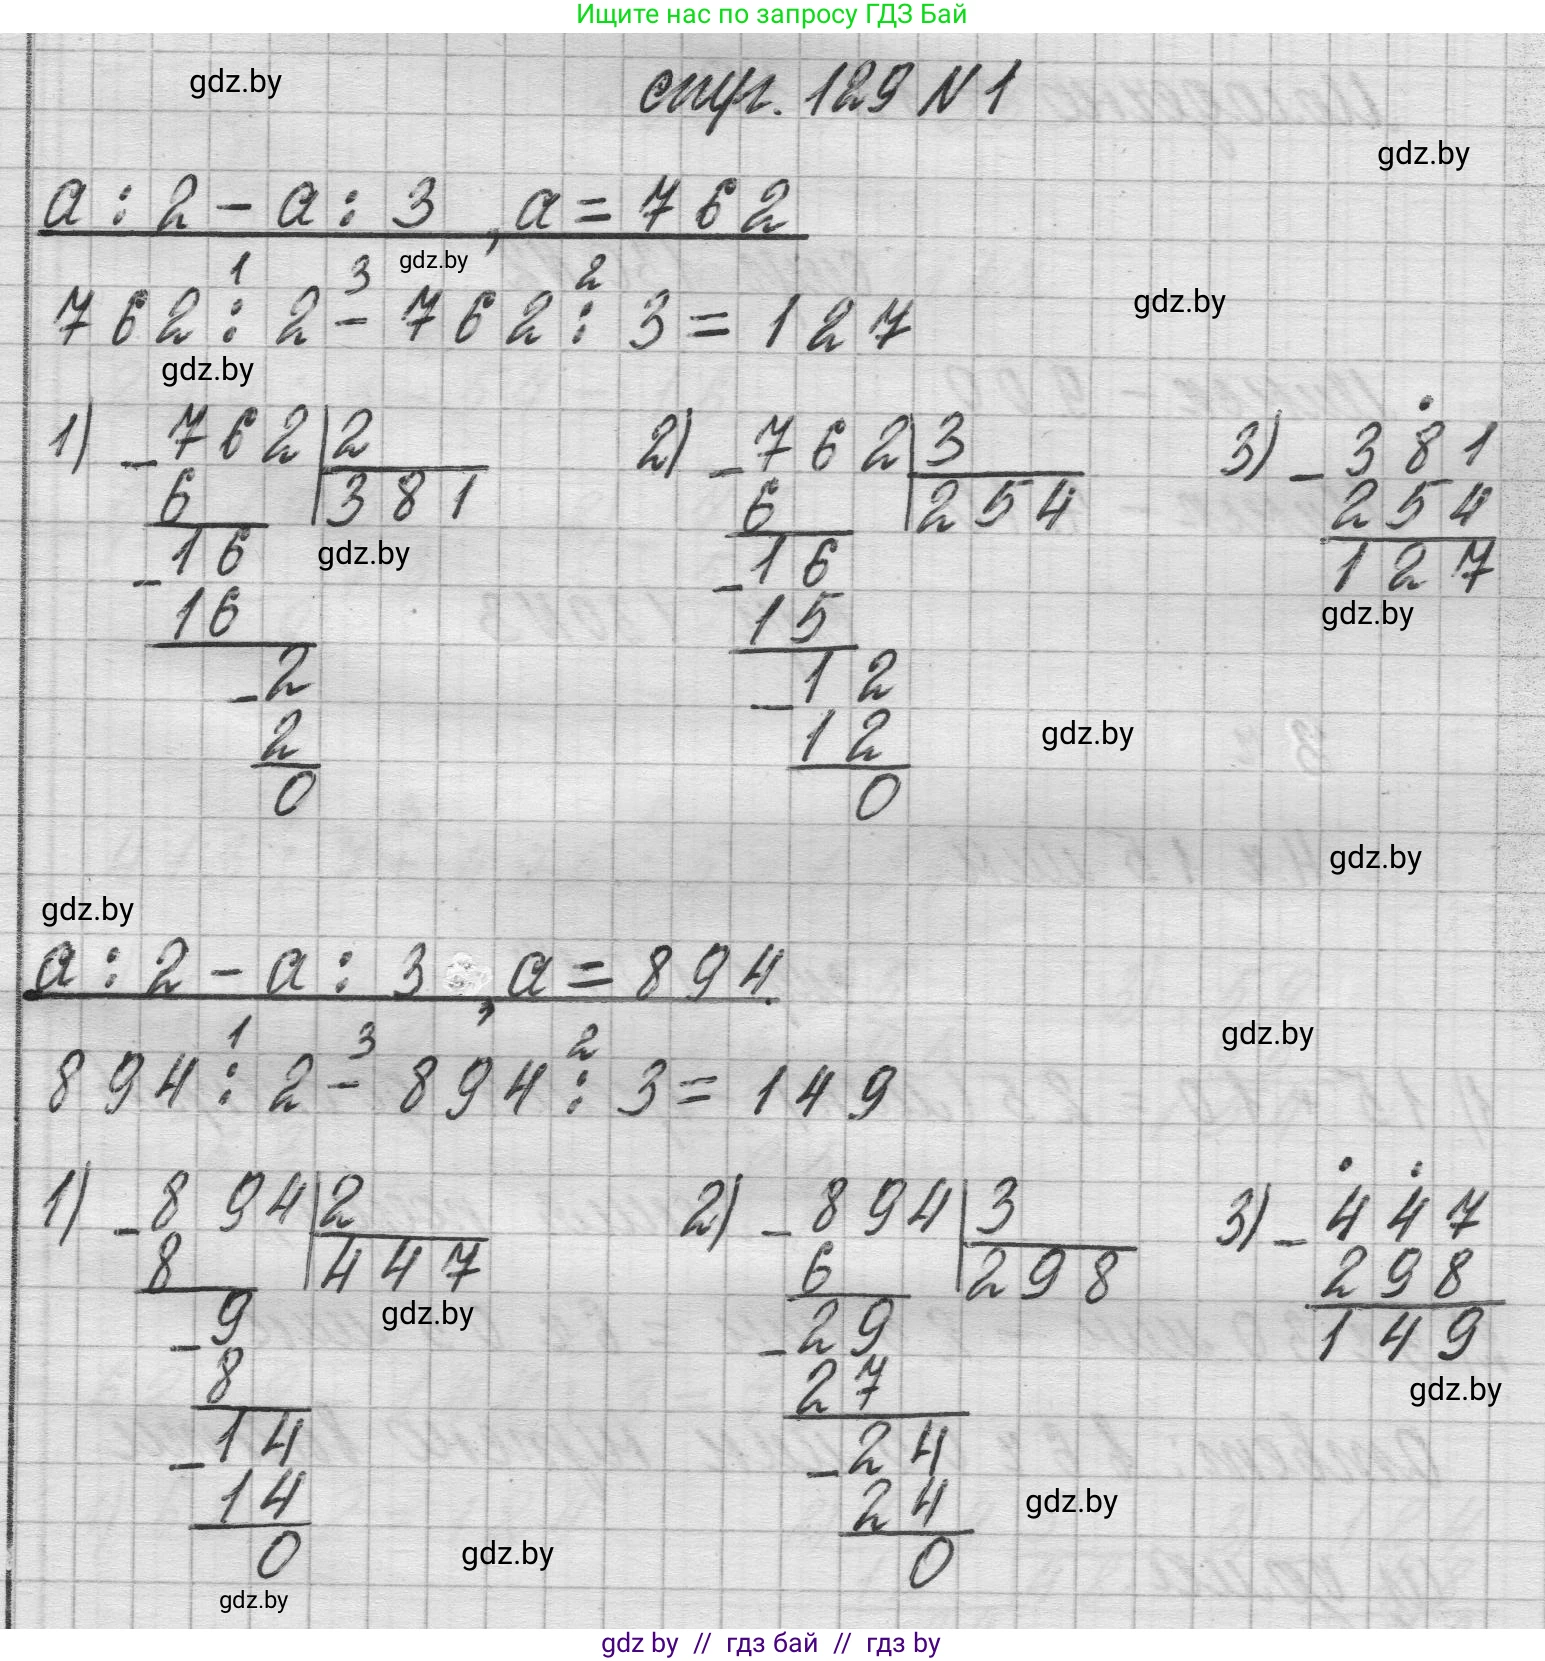 Ищите нас по запросу ГДЗ Бай
gdz.by
стр. 129 N 1
gdz.by
a : 2 - a : 3, a = 762
gdz.by
1 3 2
762 : 2 - 762 : 3 = 127
gdz.by
gdz.by
1) - 762 | 2
6 381
- 16
16
- 2
2
0
gdz.by
2) - 762 | 3
6 254
- 16
15
- 12
12
0
3) - 381
254
127
gdz.by
gdz.by
gdz.by
gdz.by
a : 2 - a : 3, a = 894.
gdz.by
1 3 2
894 : 2 - 894 : 3 = 149
1) - 894 | 2
8 447
- 9
8
- 14
14
0
gdz.by
2) - 894 | 3
6 298
- 29
27
- 24
24
0
3) - 447
298
149
gdz.by
gdz.by
gdz.by
gdz.by
gdz by // гдз бай // гдз by